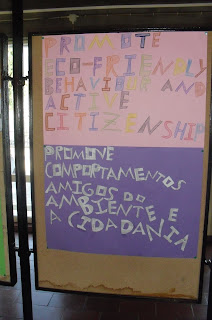 PROMOTE
ECO-FRIENDLY
BEHAVIOR AND
ACTIVE
CITIZENSHIP
PROMOVE
COMPORTAMENTOS
AMIGOS DO
AMBIENTE E
A CIDADANIA